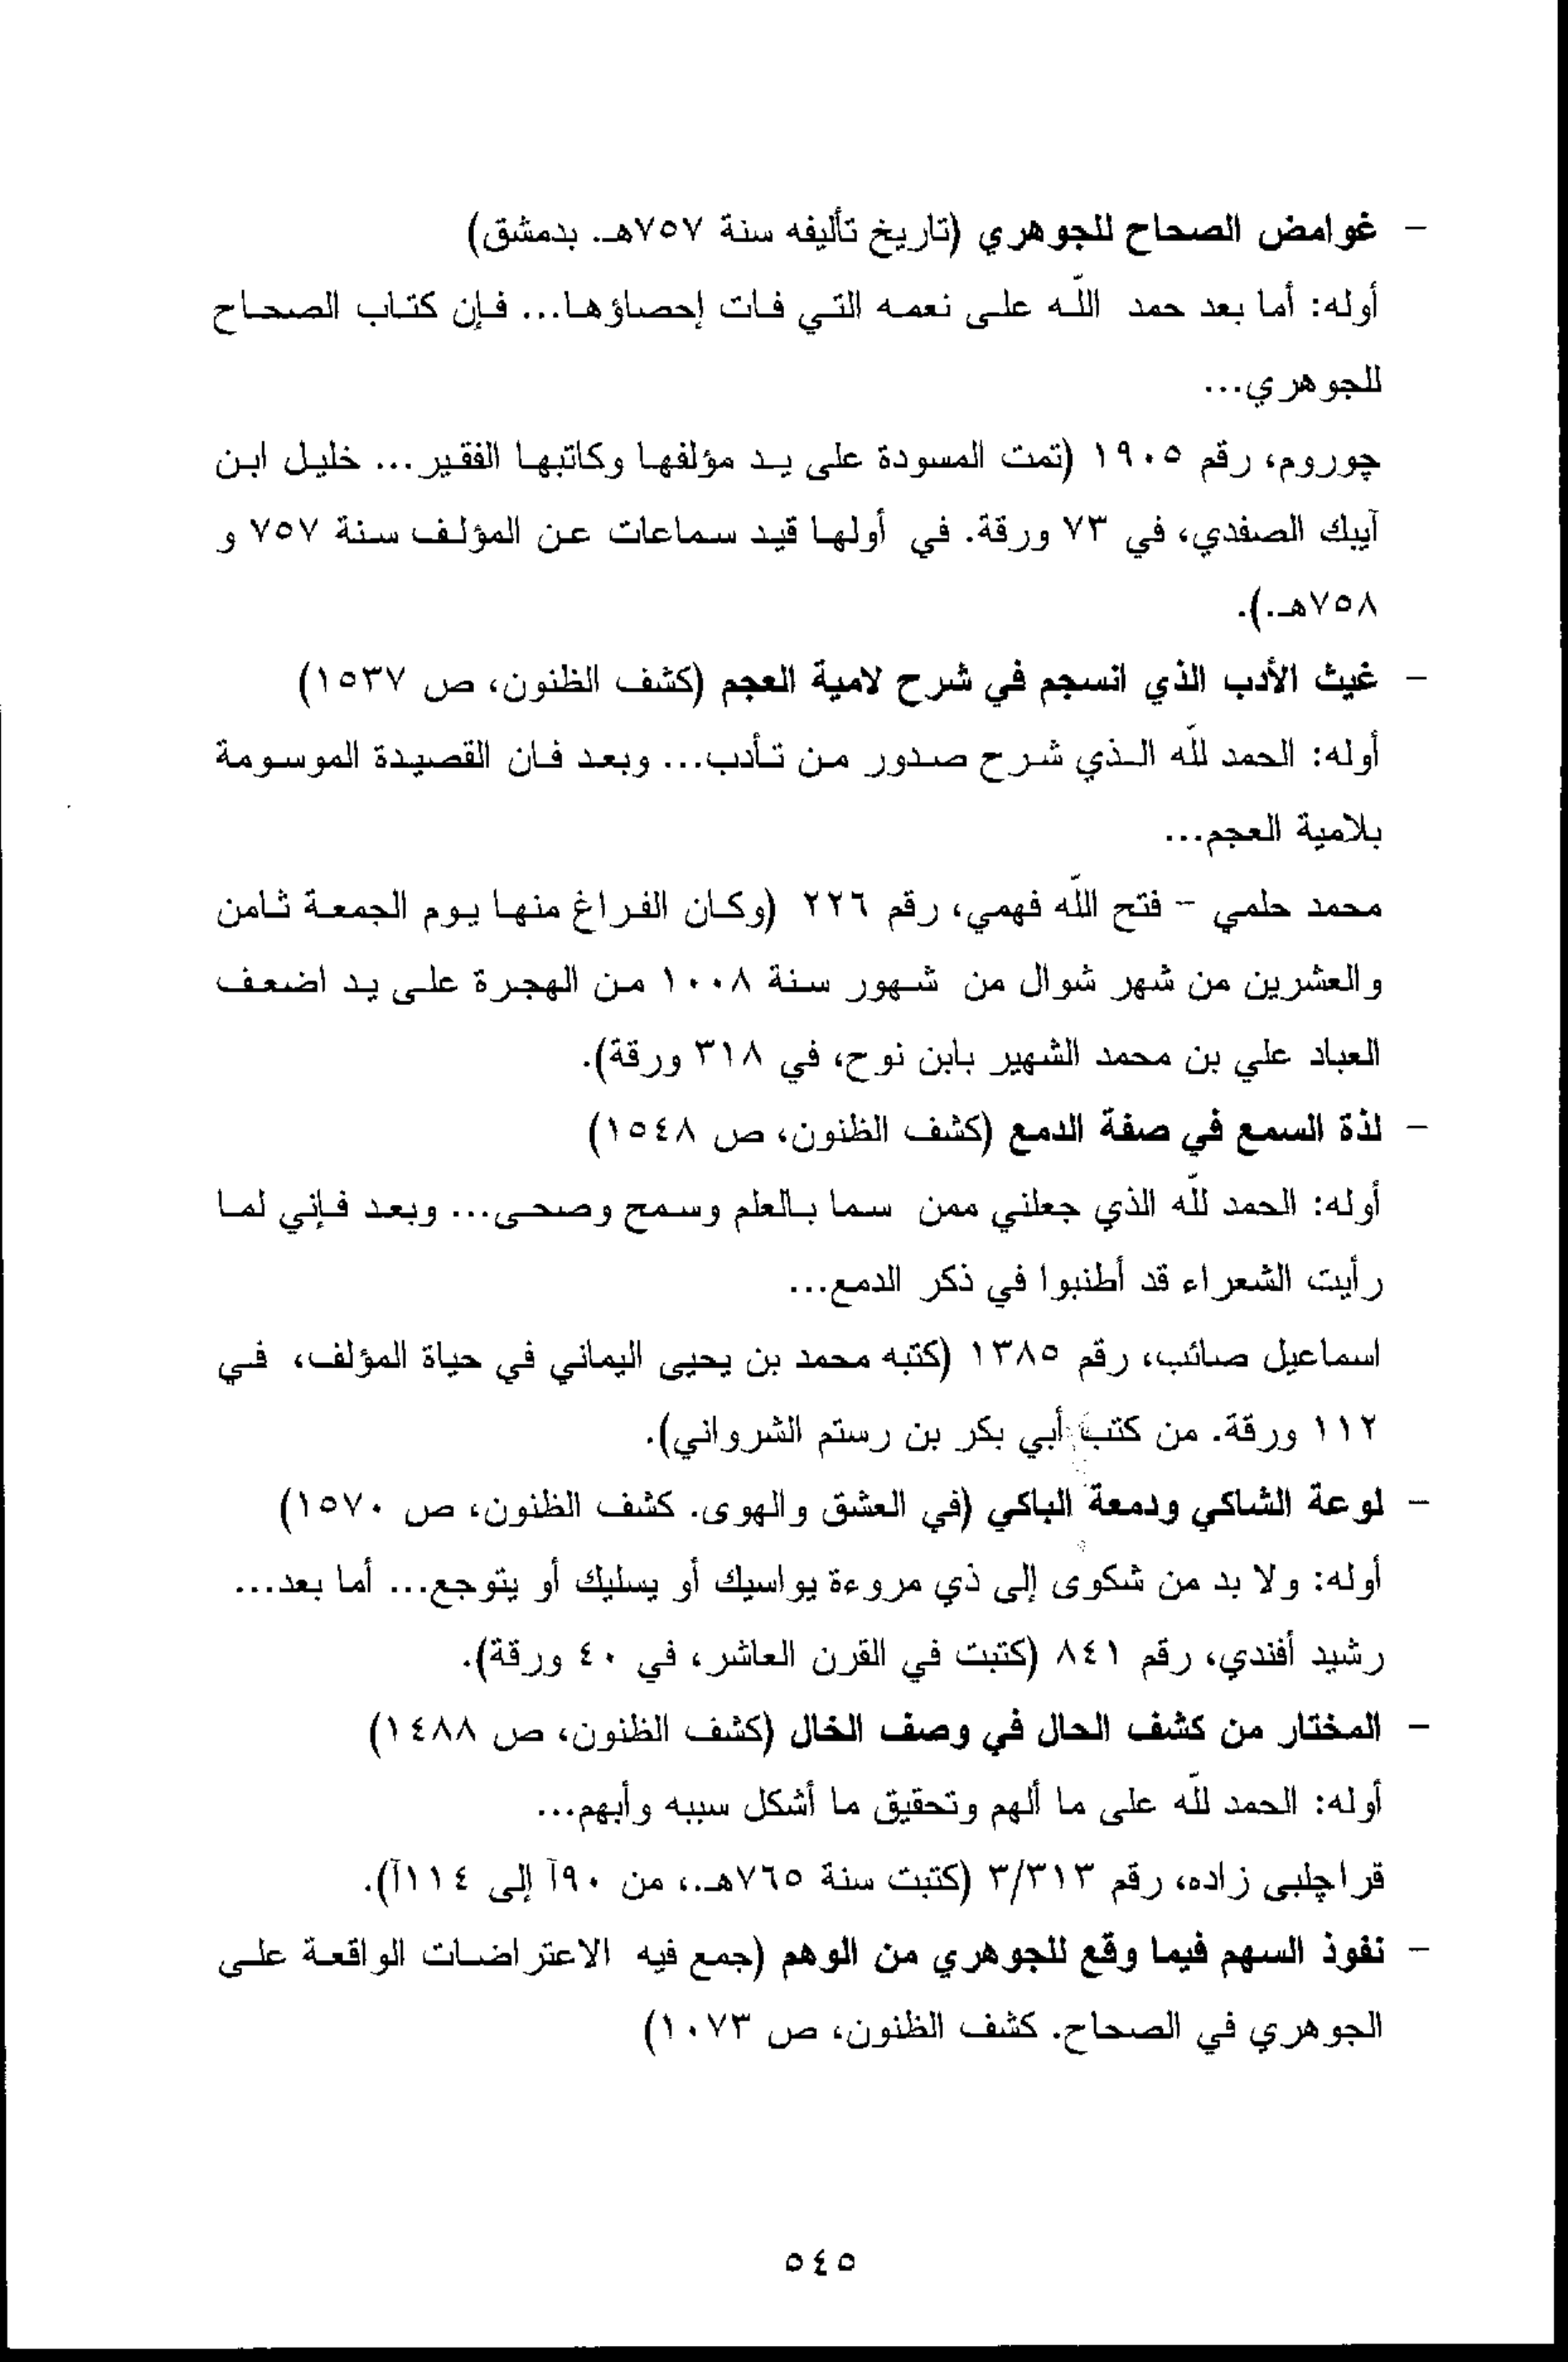 - غوامض الصحاح للجوهري (تاريخ تأليفه سنة ٧٥٧هـ. بدمشق)
أوله: أما بعد حمد اللّه على نعمه التي فات إحصاؤها... فإن كتاب الصحاح
للجوهري...
چوروم، رقم ١٩٠٥ (تمت المسودة على يد مؤلفها وكاتبها الفقير... خليل ابن
آيبك الصفدي، في ٧٣ ورقة. في أولها قيد سماعات عن المؤلف سنة ٧٥٧ و
٧٥٨هـ.).
- غيث الأدب الذي انسجم في شرح لامية العجم (كشف الظنون، ص ١٥٣٧)
أوله: الحمد للّه الذي شرح صدور من تأدب... وبعد فان القصيدة الموسومة
بلامية العجم...
محمد حلمي - فتح اللّه فهمي، رقم ٢٢٦ (وكان الفراغ منها يوم الجمعة ثامن
والعشرين من شهر شوال من شهور سنة ١٠٠٨ من الهجرة على يد اضعف
العباد علي بن محمد الشهير بابن نوح، في ٣١٨ ورقة).
- لذة السمع في صفة الدمع (كشف الظنون، ص ١٥٤٨)
أوله: الحمد للّه الذي جعلني ممن سما بالعلم وسمح وصحى... وبعد فإني لما
رأيت الشعراء قد أطنبوا في ذكر الدمع...
اسماعيل صائب، رقم ١٣٨٥ (كتبه محمد بن يحيى اليماني في حياة المؤلف، في
١١٢ ورقة. من كتب أبي بكر بن رستم الشرواني).
- لوعة الشاكي ودمعة الباكي (في العشق والهوى. كشف الظنون، ص ١٥٧٠)
أوله: ولا بد من شكوى إلى ذي مروءة يواسيك أو يسليك أو يتوجع... أما بعد...
رشيد أفندي، رقم ٨٤١ (كتبت في القرن العاشر، في ٤٠ ورقة).
- المختار من كشف الحال في وصف الخال (كشف الظنون، ص ١٤٨٨)
أوله: الحمد للّه على ما ألهم وتحقيق ما أشكل سببه وأبهم...
قراچلبى زاده، رقم ٣/٣١٣ (كتبت سنة ٧٦٥هـ.، من ٩٠آ إلى ١١٤آ).
- نفوذ السهم فيما وقع للجوهري من الوهم (جمع فيه الاعتراضات الواقعة على
الجوهري في الصحاح. كشف الظنون، ص ١٠٧٣)
٥٤٥